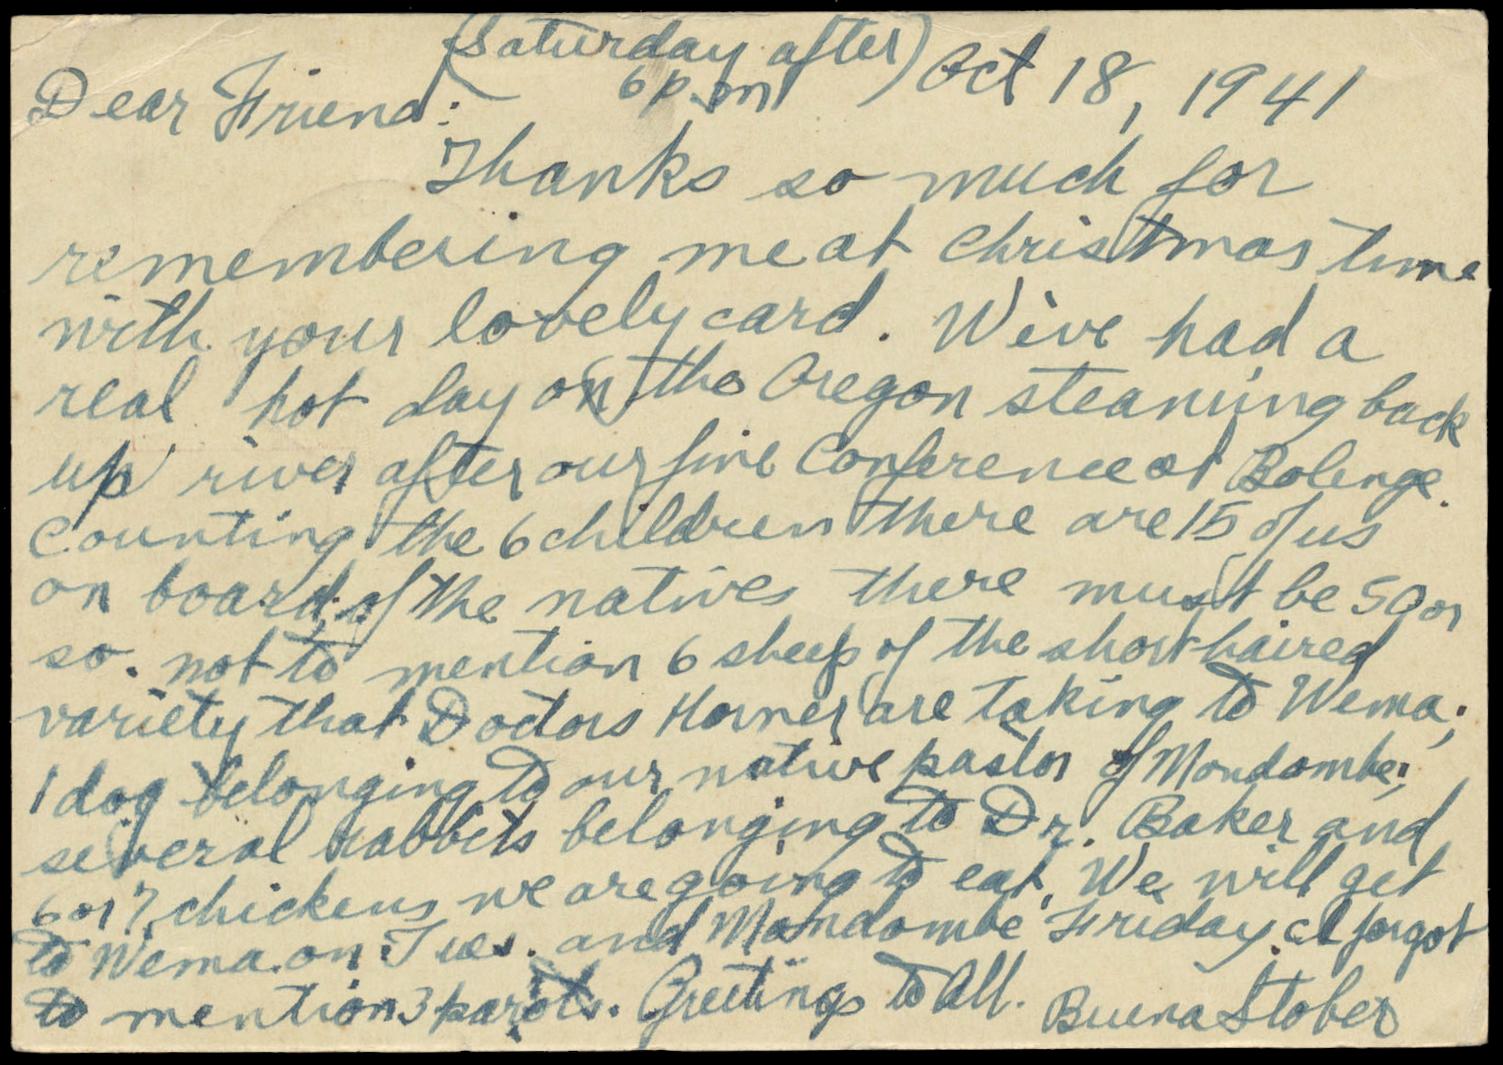 (Saturday after) Oct 18, 1941
6 p.m
Dear Friend:
Thanks so much for
remembering me at Christmas time
with your lovely card. We've had a
real hot day on the Oregon steaming back
up river after our fine Conference at Bolenge.
Counting the 6 children there are 15 of us
on board; of the natives there must be 50 or
so. not to mention 6 sheep of the short-haired
variety that Doctors Horner are taking to Wema;
1 dog belonging to our native pastor of Mondombe;
several rabbits belonging to Dr. Baker and
6 or 7 chickens we are going to eat. We will get
to Wema on Tues. and Mondombe Friday. I forgot
to mention 3 parots. Greetings to all.
Buena Stober